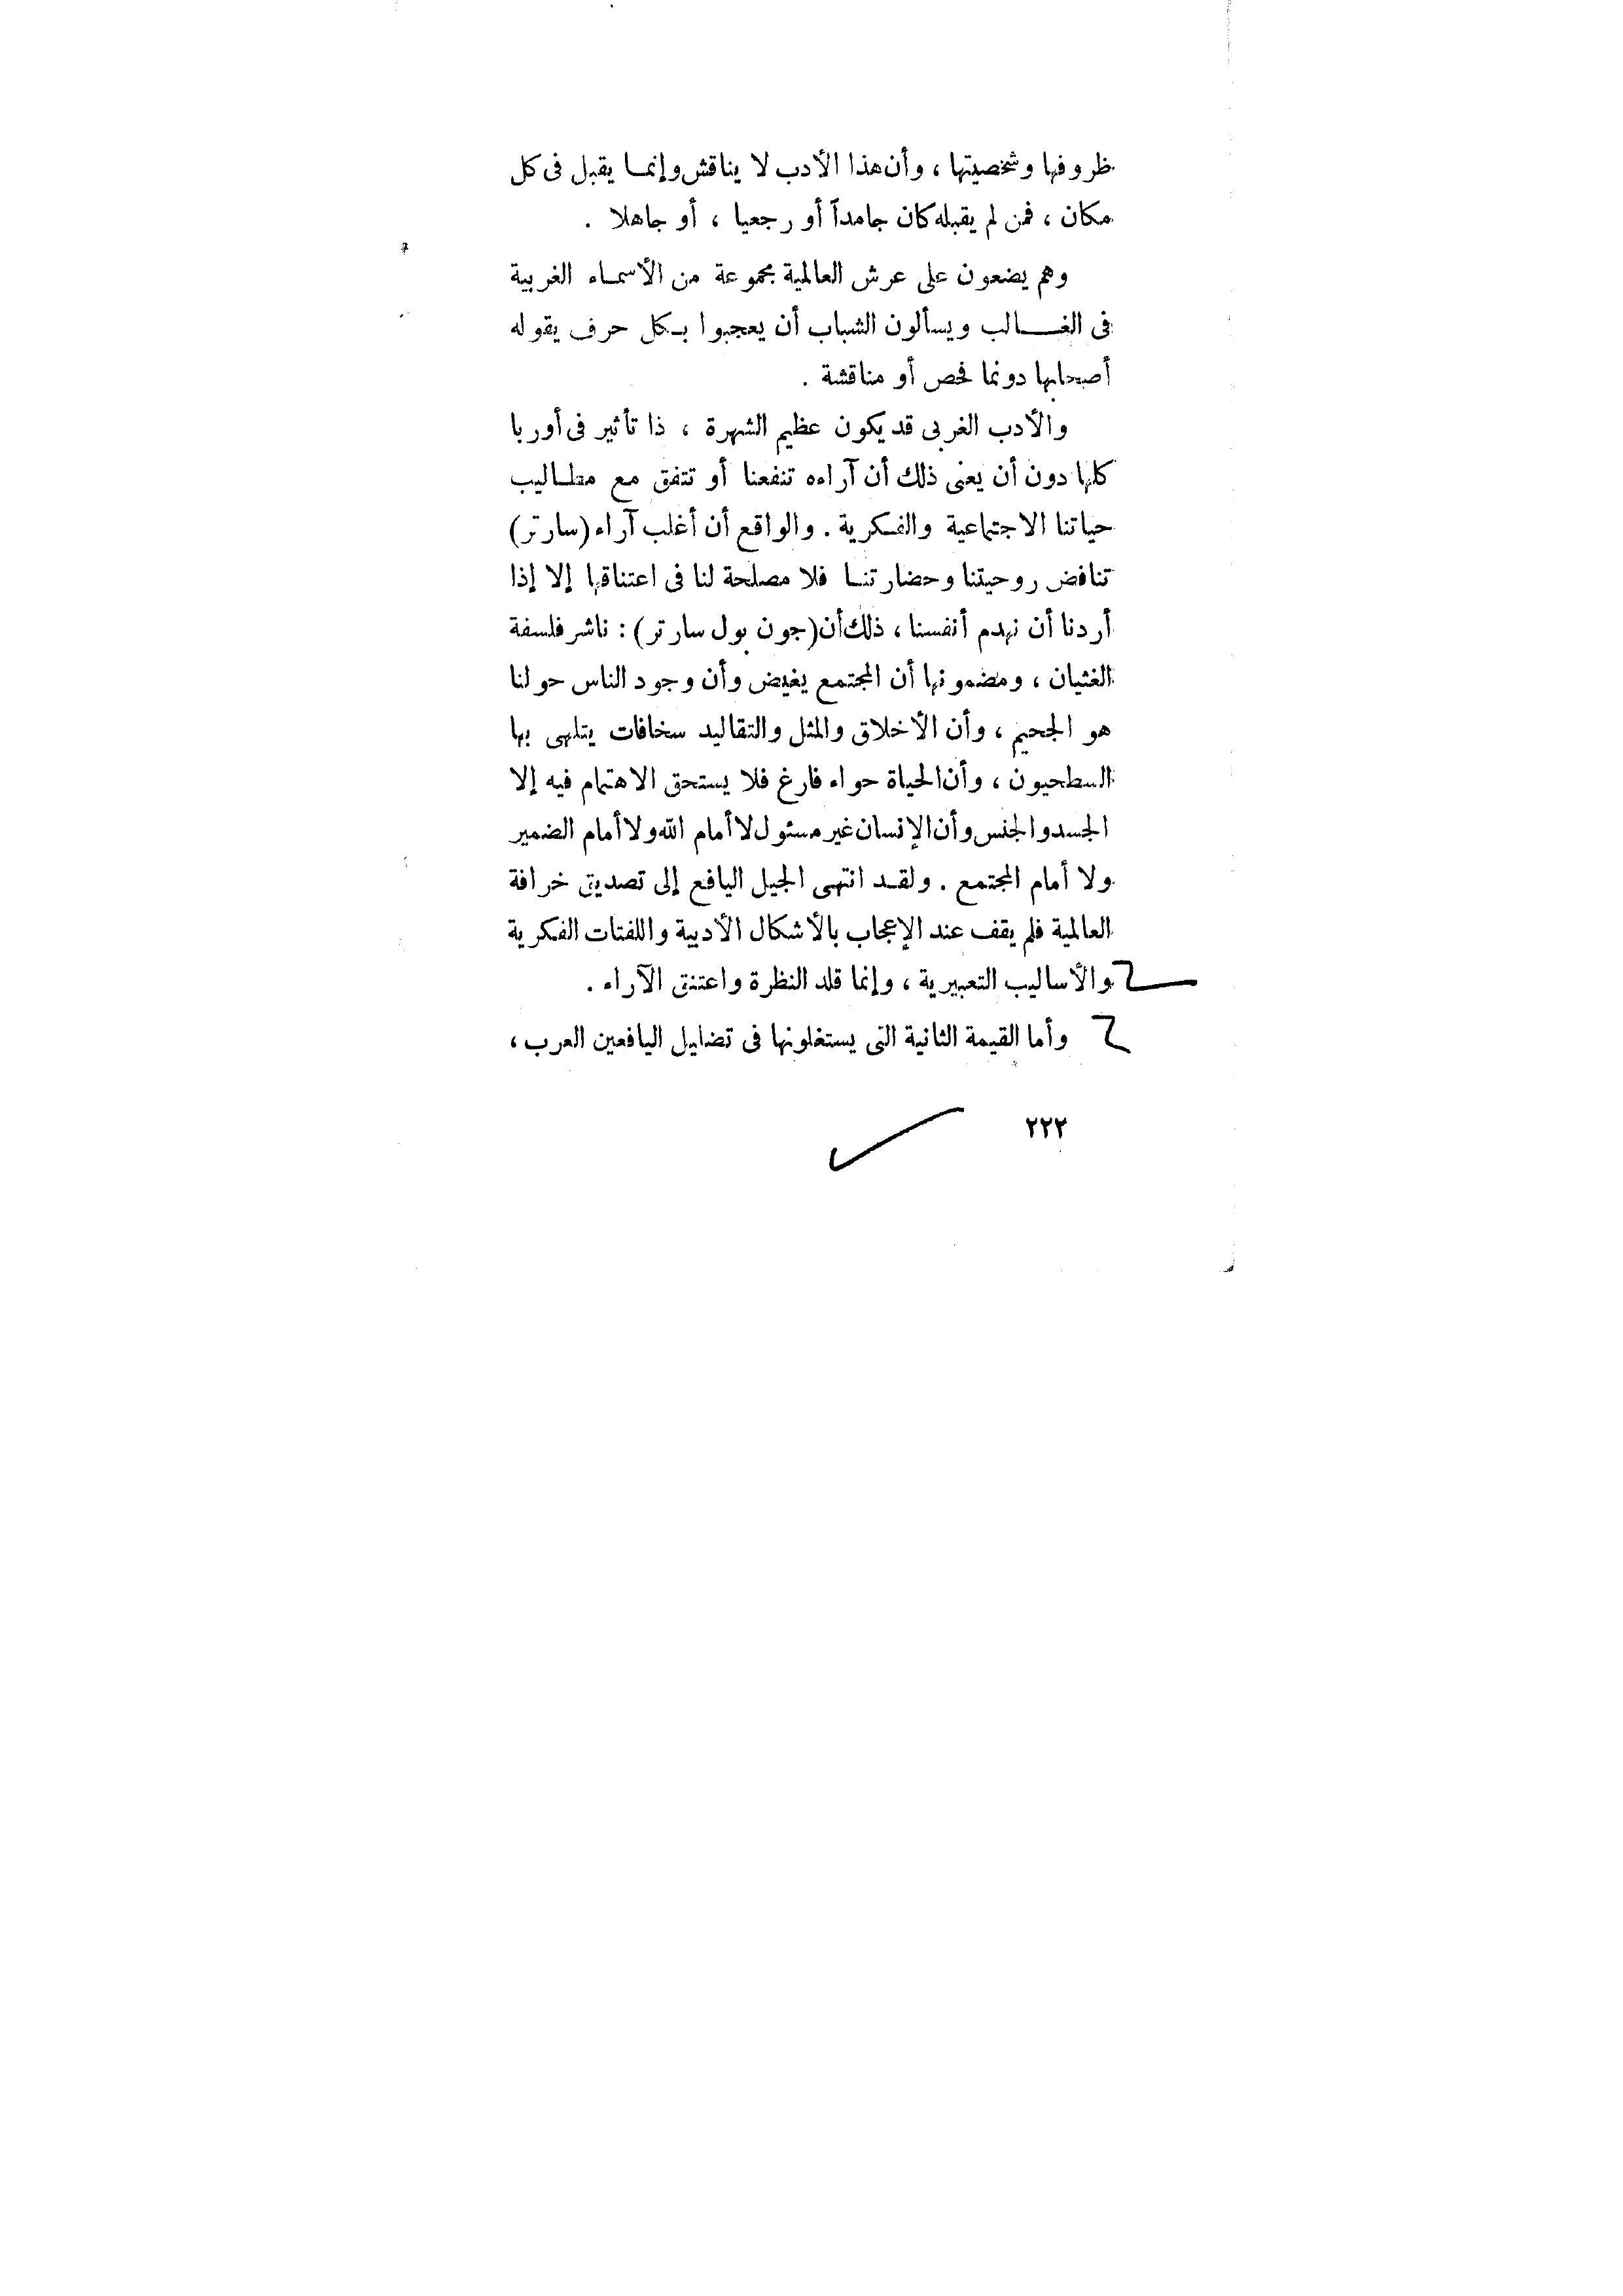 ظروفها وشخصيتها ، وأن هذا الأدب لا يناقش وإنمـا يقبل فى كل
مكان ، فمن لم يقبله كان جامداً أو رجعيا ، أو جاهلا .
وهم يضعون على عرش العالمية مجموعة من الأسمـاء الغربية
فى الغـــالب ويسألون الشباب أن يعجبوا بـكل حرف يقوله
أصحابها دونما فحص أو مناقشة .
والأدب الغربى قد يكون عظيم الشهرة ، ذا تأثير فى أوربا
كلها دون أن يعنى ذلك أن آراءه تنفعنا أو تتفق مع مطـاليب
حياتنا الاجتماعية والفـكرية . والواقع أن أغلب آراء (سارتر)
تناقض روحيتنا وحضارتنـا فلا مصلحة لنا فى اعتناقها إلا إذا
أردنا أن نهدم أنفسنا ، ذلك أن (جون بول سارتر) : ناشر فلسفة
الغثيان ، ومضمونها أن المجتمع يغيض وأن وجود الناس حولنا
هو الجحيم ، وأن الأخلاق والمثل والتقاليد سخافات يتلهى بها
السطحيون ، وأن الحياة حواء فارغ فلا يستحق الاهتمام فيه إلا
الجسد والجنس وأن الإنسان غير مسئول لا أمام الله ولا أمام الضمير
ولا أمام المجتمع . ولقـد انتهى الجيل اليافع إلى تصديق خرافة
العالمية فلم يقف عند الإعجاب بالأشكال الأدبية واللفتات الفكرية
والأساليب التعبيرية ، وإنما قلد النظرة واعتنق الآراء .
وأما القيمة الثانية التى يستغلونها فى تضليل اليافعين العرب ،
٢٢٢